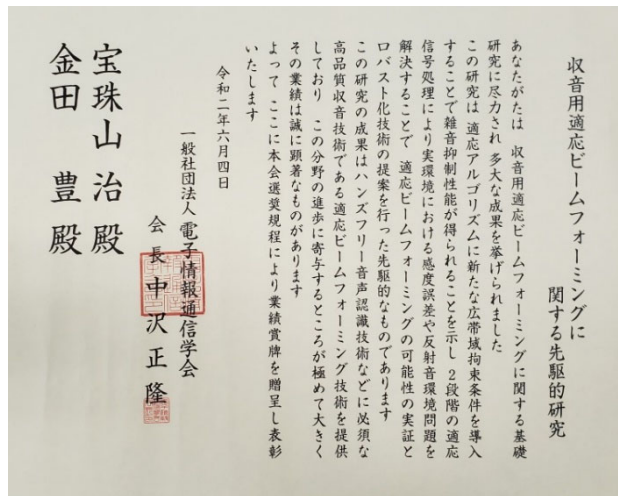 収音用適応ビームフォーミングに
関する先駆的研究
あなたがたは 収音用適応ビームフォーミングに関する基礎
研究に尽力され 多大な成果を挙げられました
この研究は 適応アルゴリズムに新たな広帯域拘束条件を導入
することで雑音抑制性能が得られることを示し 2段階の適応
信号処理により実環境における感度誤差や反射音環境問題を
解決することで 適応ビームフォーミングの可能性の実証と
ロバスト化技術の提案を行った先駆的なものであります
この研究の成果はハンズフリー音声認識技術などに必須な
高品質収音技術である適応ビームフォーミング技術を提供
しており この分野の進歩に寄与するところが極めて大きく
その業績は誠に顕著なものがあります
よって ここに本会選奨規程により業績賞牌を贈呈し表彰
いたします
令和二年六月四日
一般社団法人 電子情報通信学会
会長 中沢正隆
宝珠山 治殿
金田 豊殿